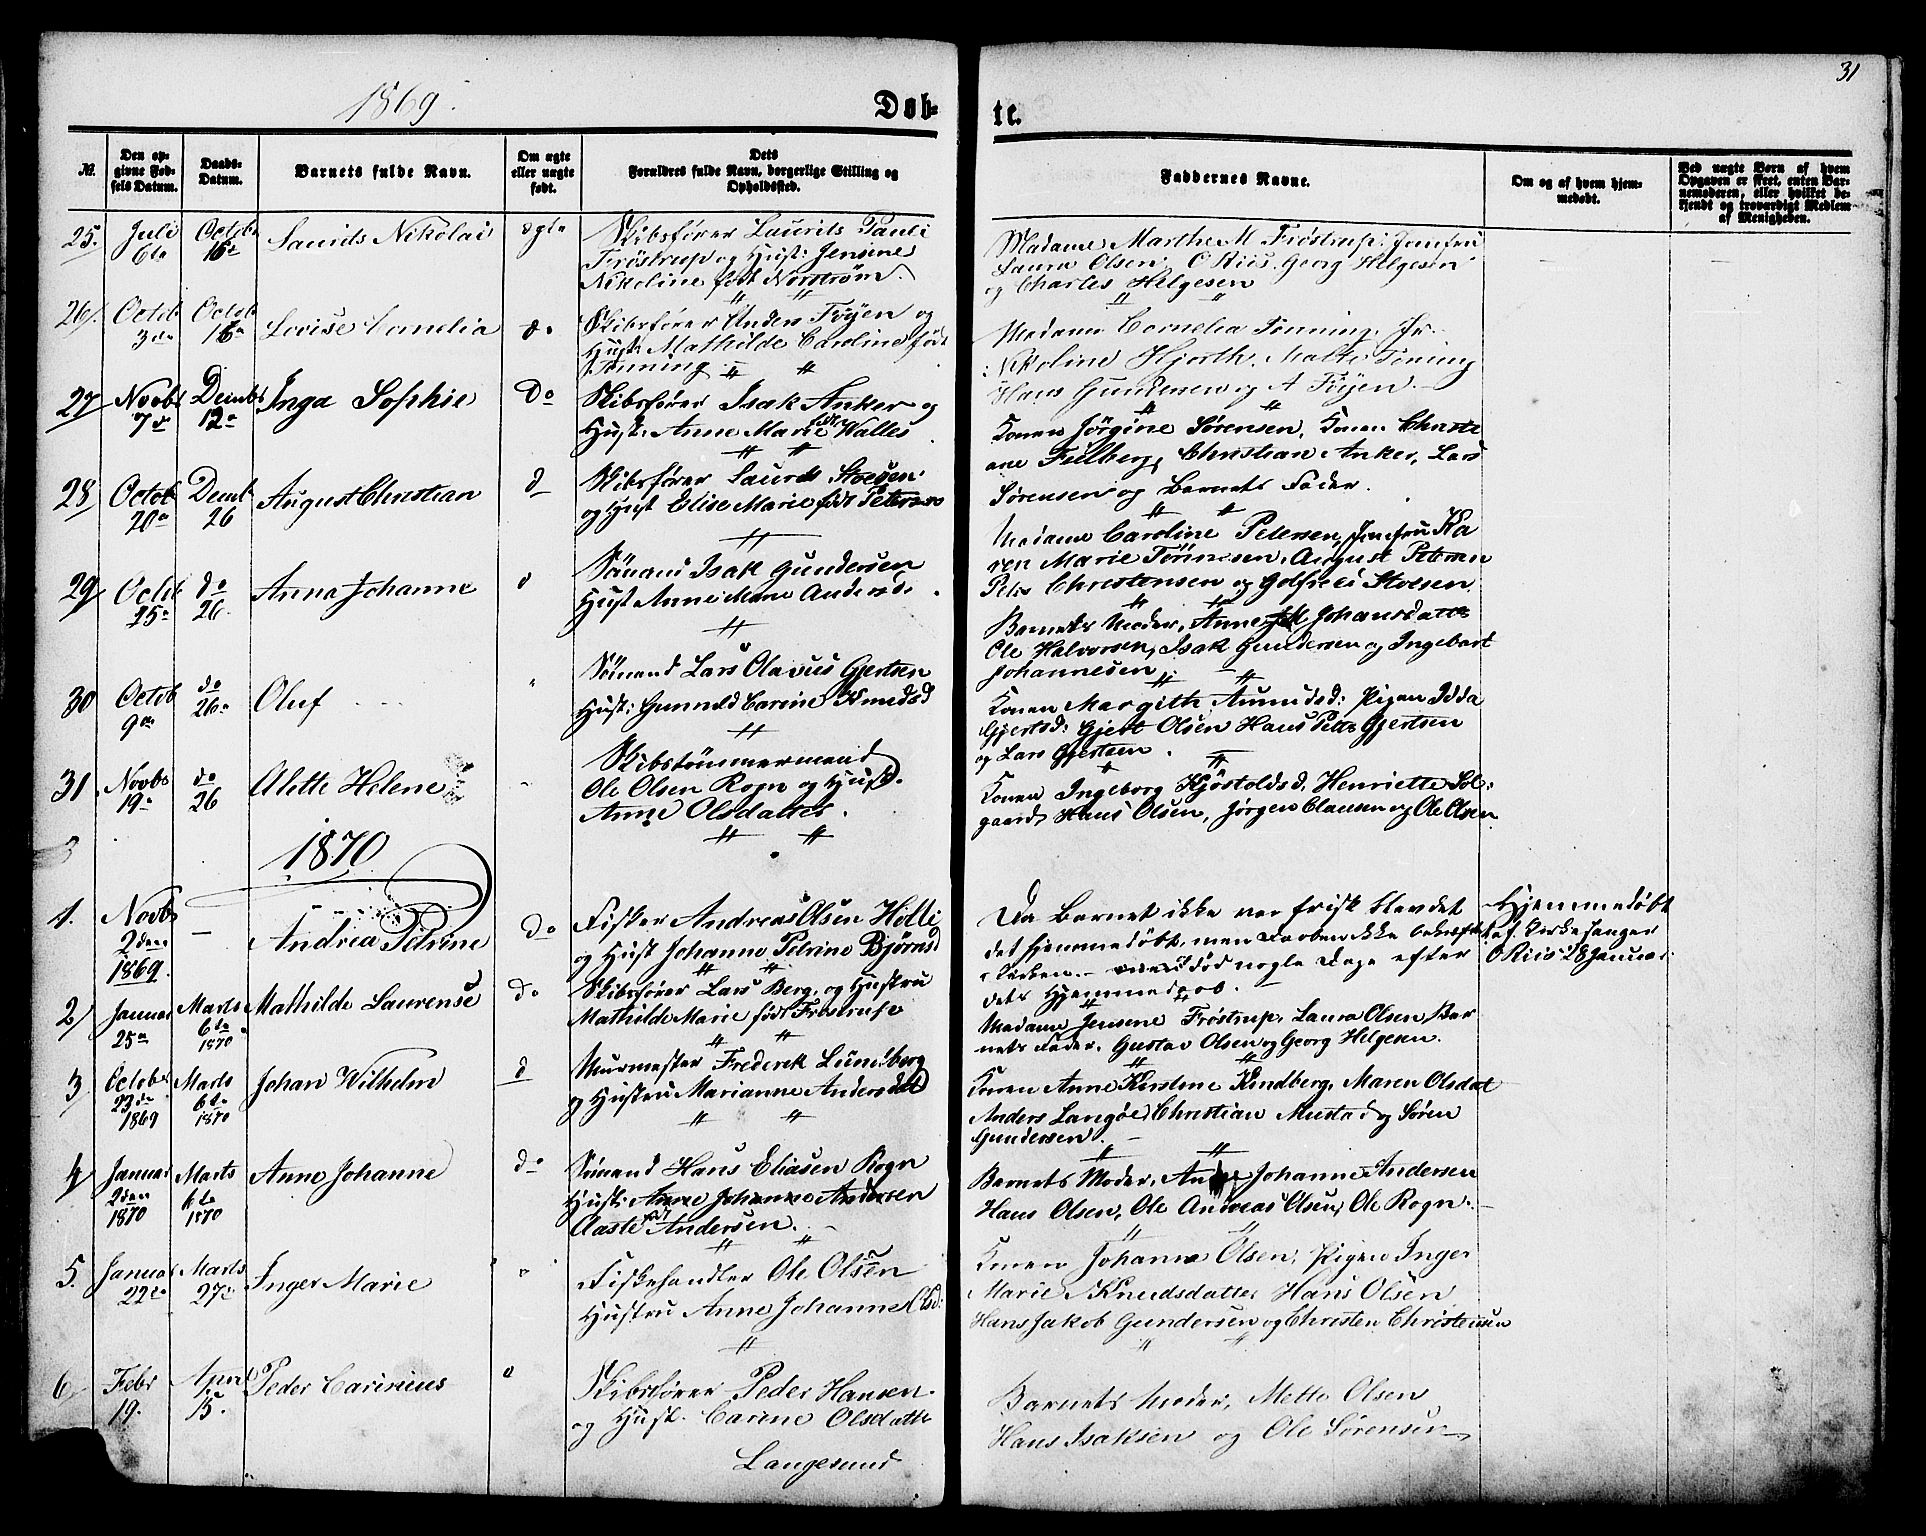 31
1869.
Døb-
te.
№.
Den op-
givne Fød-
sels Datum.
Daabs-
Datum.
Barnets fulde Navn.
Om ægte
eller uægte
født.
Dets
Forældres fulde Navn, borgerlige Stilling og
Opholdssted.
Faddernes Navne.
Om og af hvem hjem-
medøbt.
Ved uægte Børn af hvem
Opgaven er skeet, enten Bar-
nemoderen, eller hvilket be-
kjendt og troværdigt Medlem
af Menigheden.
25.
Juli
6te
Octob
16de
Laurids Nikolai
ægte
Skibsfører Laurits Pauli
Frøstrup og Hust: Jensine
Nikoline født Norstrøm.
Madame Marthe M. Frøstrup: Jomfru
Laura Olsen. O Riis, Georg Helgesen
og Charles Helgesen
26.
Octob
3die
Octob
16de
Lovise Cornelia
do
Skibsfører Anders Føyen og
Hust: Mathilde Caroline født
Tønning
Madame Cornelia Tønning, Fr.
Nikoline Hjorth. Malte Tønning
Hans Gundersen og A Føyen.
27
Novbr
7de
Decmbr
12te
Inga Sophie
Do
Skibsfører Isak Anker og
Hust: Anne Marie født Walles
Konen Jörgine Sörensen, Konen Christi
ane Feilberg, Christian Anker, Lars
Sörensen og Barnets Fader.
28
Octob
20de
Decmb
26
August Christian
d
Skibsfører Laurits Stoesen
og Hust Elise Marie født Petersen
Madame Caroline Petersen, Jomfru Ka
ren Marie Tönnesen, August Petersen
Peter Christensen og Golfred Stoesen.
29
Octob
25de
do
26.
Anna Johanne
d
Sömand Isak Gundersen
Hust Anne Marie Andersd.
Barnets Moder, Anne M Johansdatter
Ole Halvorsen, Isak Gundersen og Ingebart
Johannesen
30
Octob
9de
do
26de
Oluf
Sömand Lars Olavus Gjertsen
Hust: Gunnild Carine Knudsd
Konen Margith Aamundsd: Pigen Idda
Gjertsd: Gjert Olsen Hans Peter Gjertsen
og Lars Gjertsen.
31
Novbr
19de
do
26
Alette Helene
Skibstømmermand
Ole Olsen Rogn og Hust.
Anne Olsdatter.
Konen Ingeborg Kjöstoldsd, Henriette Sol-
gaard, Hans Olsen, Jörgen Clausen og Ole Olsen
1870
1.
Novbr
2den
1869.
Andrea Petrine
do
Fisker Andreas Olsen Holli
og Hust Johanne Petrine Björnsd
Da Barnet ikke var frisk blev det
det hjemmedøbt, men Daaben ikke bekræftet
i Kirken. døde nogle Dage efter
dets Hjemmedaab.
Hjemmedøbt
af Kirkesanger
O Riis 28 Januar
2
Januar
25de
Marts
6te
1870
Mathilde Laurense
do
Skibsfører Lars Berg, og Hustru
Mathilde Marie født Frøstrup
Madame Jensine Frøstrup, Laura Olsen, Bar
nets Fader. Gustav Olsen og Georg Helgesen.
3.
October
23de
1869
Marts
6te
1870
Johan Wilhelm
d
Murmester Frederek Lundberg
og Hustru Marianne Andersdat
Konen Anne Kirstine Kindberg, Maren Olsdat
Anders Langöe, Christian Mustad og Sören
Gundersen.
4
Januar
2den
1870
Marts
6te
1870
Anne Johanne
do
Sömand Hans Eliasen Rogn
Hust: Anne Johanne Andersen
Aaste født Andersen.
Barnets Moder, Anne Johanne Andersen
Hans Olsen, Ole Andreas Olsen, Ole Rogn.
5.
Januar
22de
Marts
27de
Inger Marie
Fiskehandler Ole Olsen
Hustru Anne Johanne Olsd:
Konen Johanne Olsen, Pigen Inger
Marie Knudsdatter Hans Olsen
Hans Jakob Gundersen og Christen Christensen
6
Febr
19.
April
15.
Peder Carinius
Skibsfører Peder Hansen
og Hust. Carine Olsdatter
Langesund
Barnets Moder, Mette Olsen
Hans Isaksen og Ole Sörensen